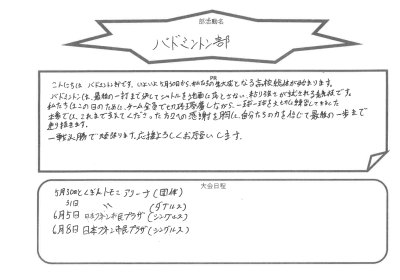 部活動名
バドミントン部
PR
こんにちは バドミントン部です。いよいよ5月30日から、私たちの集大成となる高校総体が始まります。
バドミントンは、最後の一打まで決してシャトルを地面に落とさない、粘り強さが試される競技です。
私たちはこの日のために、チーム全員で切磋琢磨しながら、一球一球を大切に練習してきました
本番では、これまで支えてくださった方々への感謝を胸に、自分たちの力を信じて最後の一歩まで
走り抜きます。
一戦必勝で頑張ります。応援よろしくお願いします。
大会日程
5月30日 とくぎんトモニアリーナ (団体)
31日 〃 (ダブルス)
6月5日 日本フネン市民プラザ (シングルス)
6月8日 日本フネン市民プラザ (シングルス)